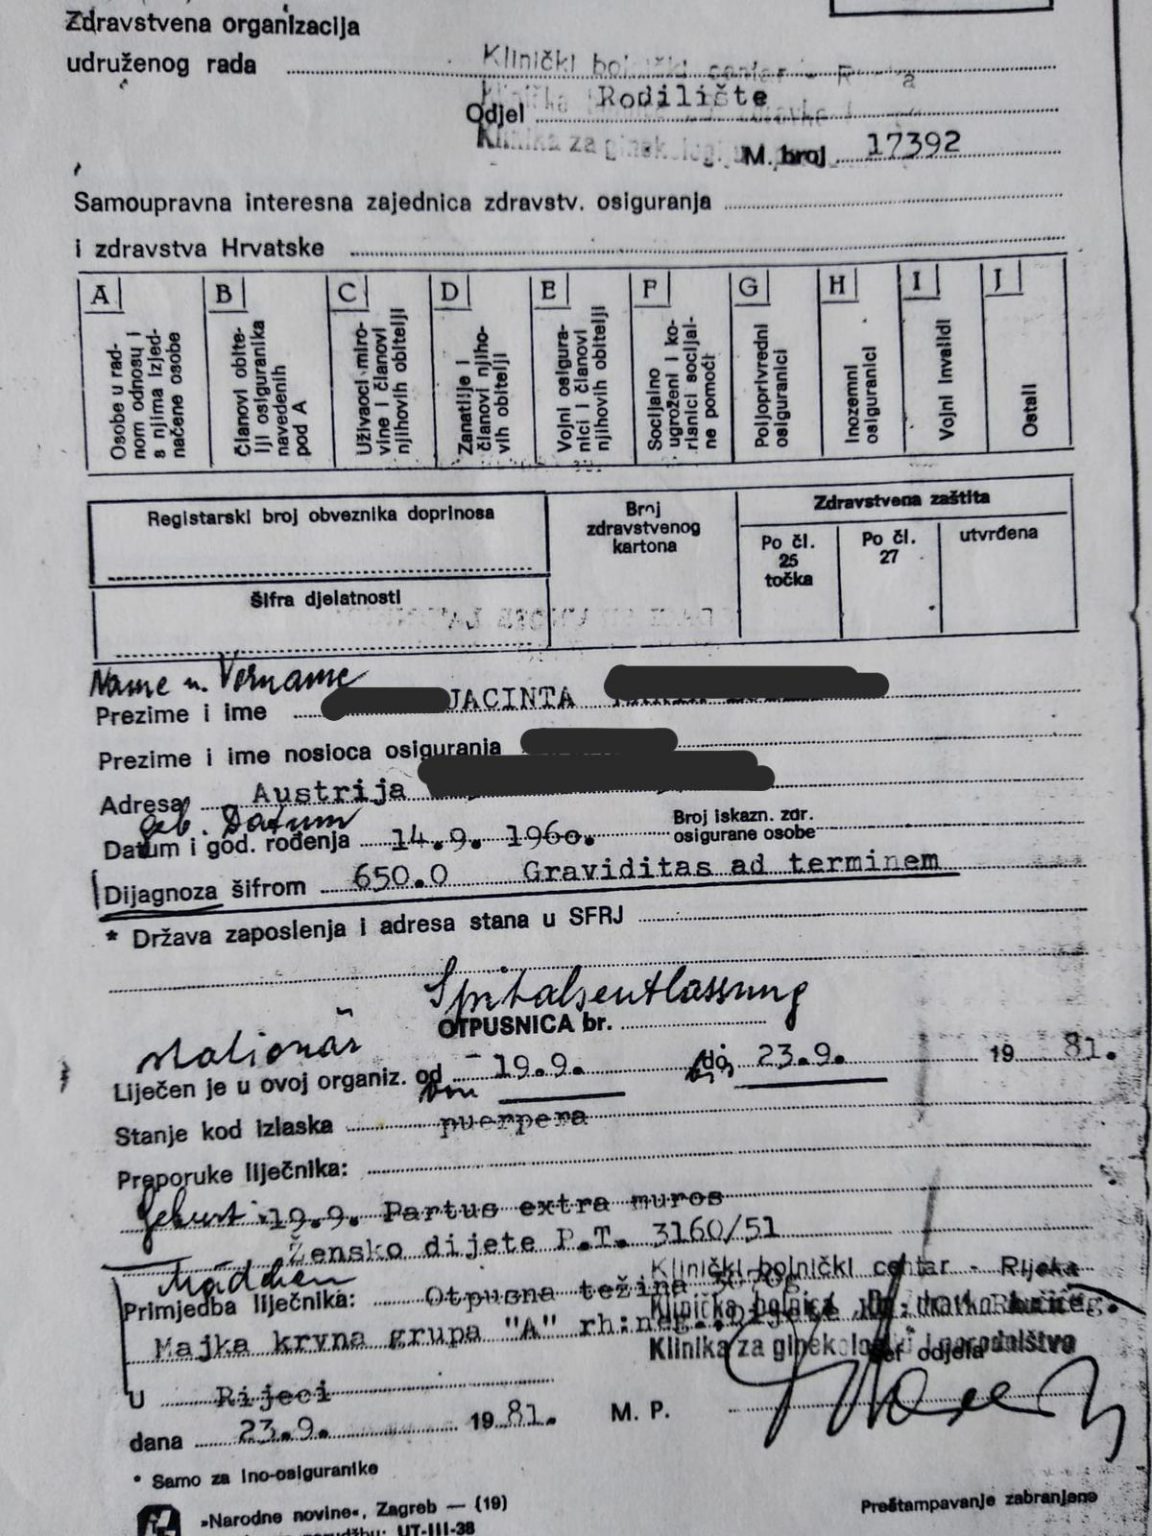 Zdravstvena organizacija
udruženog rada
Klinički bolnički centar - R
Rodilište
Odjel
Klinika za ginekologiju
M. broj 17392
Samoupravna interesna zajednica zdravstv. osiguranja
i zdravstva Hrvatske
A B C D E F G H I J
Osobe u rad-
nom odnosu i
s njima izjed-
načene osobe
Članovi obite-
lji osiguranika
navedenih
pod A
Uživaoci miro-
vine i članovi
njihovih obitelji
Zanatlije i
članovi njiho-
vih obitelji
Vojni osigura-
nici i članovi
njihovih obitelji
Socijalno
ugroženi i ko-
risnici socijal-
ne pomoći
Poljoprivredni
osiguranici
Inozemni
osiguranici
Vojni invalidi
Ostali
Registarski broj obveznika doprinosa
Šifra djelatnosti
Broj
zdravstvenog
kartona
Zdravstvena zaštita
Po čl.
25
točka
Po čl.
27
utvrđena
Name u. Vorname
Prezime i ime JACINTA
Prezime i ime nosioca osiguranja
Adresa Austrija
geb. Datum
Datum i god. rođenja 14.9. 1960.
Broj iskazn. zdr.
osigurane osobe
Dijagnoza šifrom 650.0 Graviditas ad terminem
* Država zaposlenja i adresa stana u SFRJ
Spitalsentlassung
OTPUSNICA br.
stationär
Liječen je u ovoj organiz. od 19.9. do 23.9. 19 81.
von bis
Stanje kod izlaska puerpera
Preporuke liječnika:
Geburt 19.9. Partus extra muros
Žensko dijete P.T. 3160/51
Mädchen
Klinički bolnički centar - Rijeka
Primjedba liječnika: Otpusna težina 3070g
Klinička bolnica
Majka krvna grupa "A" rh:neg. Dijete
Klinika za ginekologiju i porodništvo
Šef odjela
U Rijeci
dana 23.9. 19 81. M. P.
* Samo za ino-osiguranike
»Narodne novine«, Zagreb — (19)
UT-III-38
Preštampavanje zabranjeno